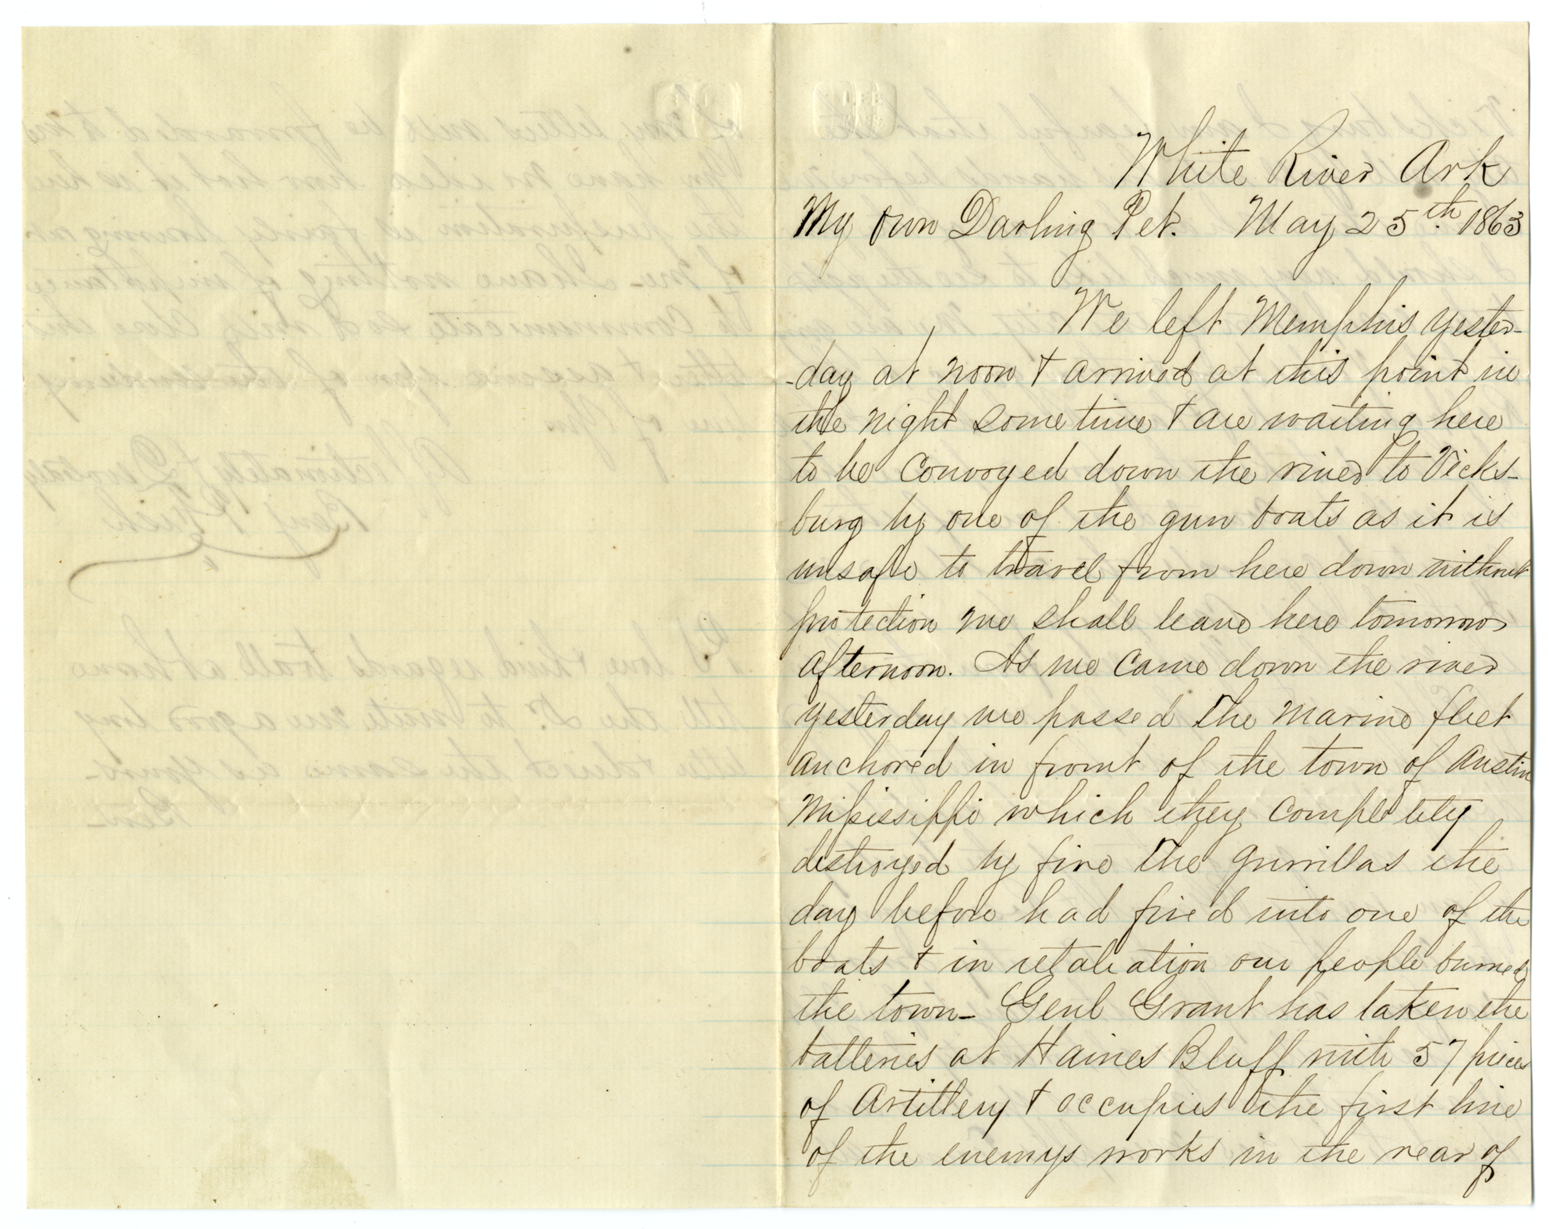 White River Ark
My own Darling Pet. May 25th. 1863
We left Memphis yester-
-day at noon & arrived at this point in
the night some time & are waiting here
to be convoyed down the river to Vicks-
burg by one of the gun boats as it is
unsafe to travel from here down without
protection we shall leave here tomorrow
afternoon. As we came down the river
yesterday we passed the marine fleet
anchored in front of the town of Austin
Mississippi which they completely
destroyed by fire The gurrillas the
day before had fired into one of the
boats & in retaliation our people burned
the town- Genl Grant has taken the
batteries at Haines Bluff with 57 pieces
of Artillery & occupies the first line
of the enemys works in the rear of